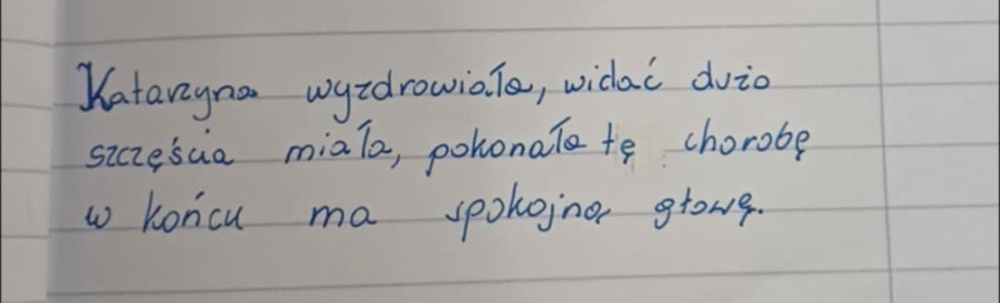 Katarzyna wyzdrowiała, widać dużo
szczęścia miała, pokonała tę chorobę
w końcu ma spokojną głowę.